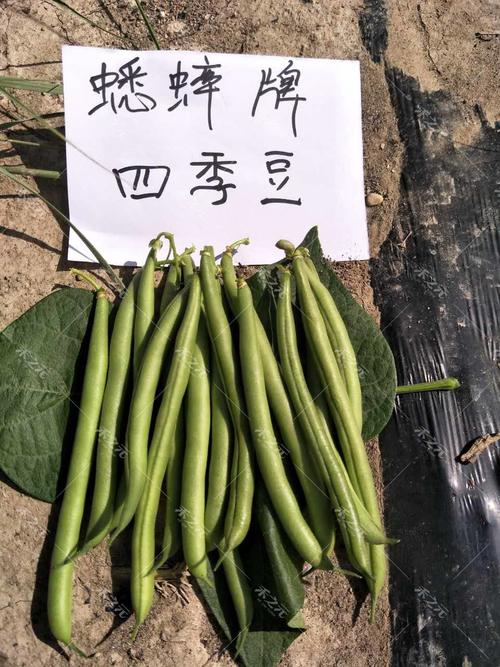 蟋蟀牌
四季豆